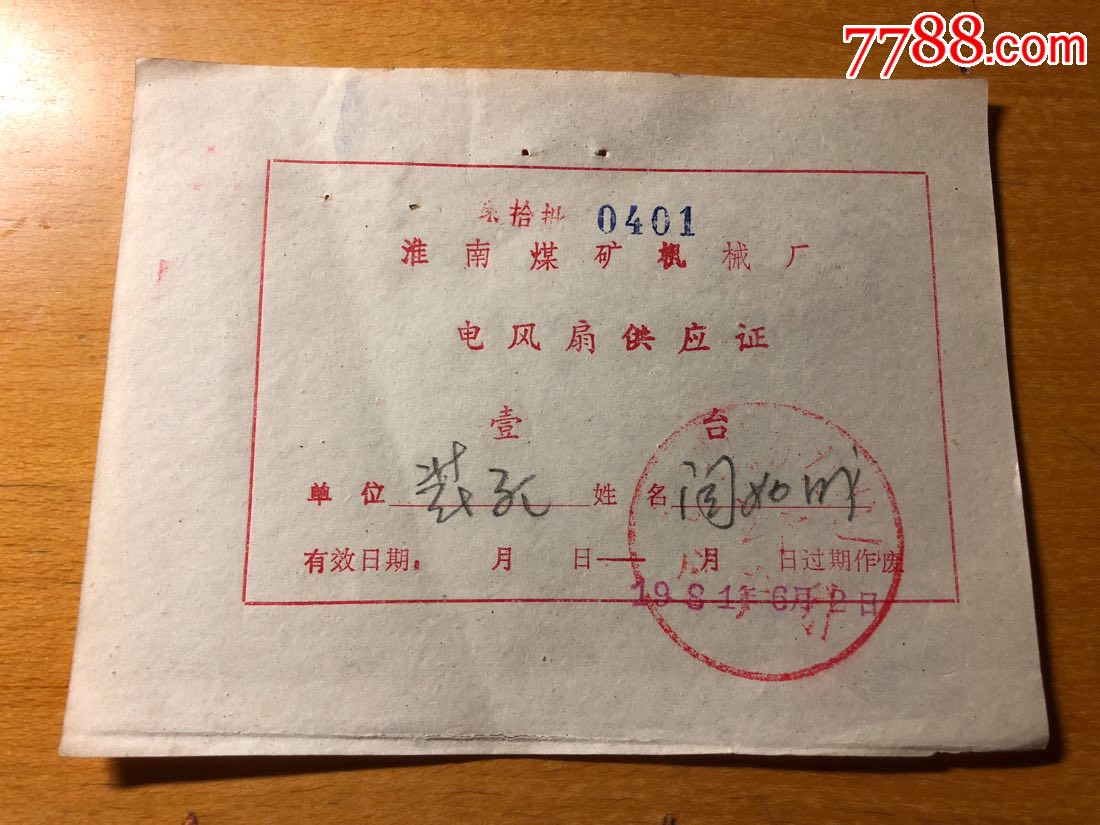 7788.com
拾批 0401
淮南煤矿机械厂
电风扇供应证
壹 台
单位 装配 姓名 闫如
有效日期: 月 日—— 月 日过期作废
1981年6月2日